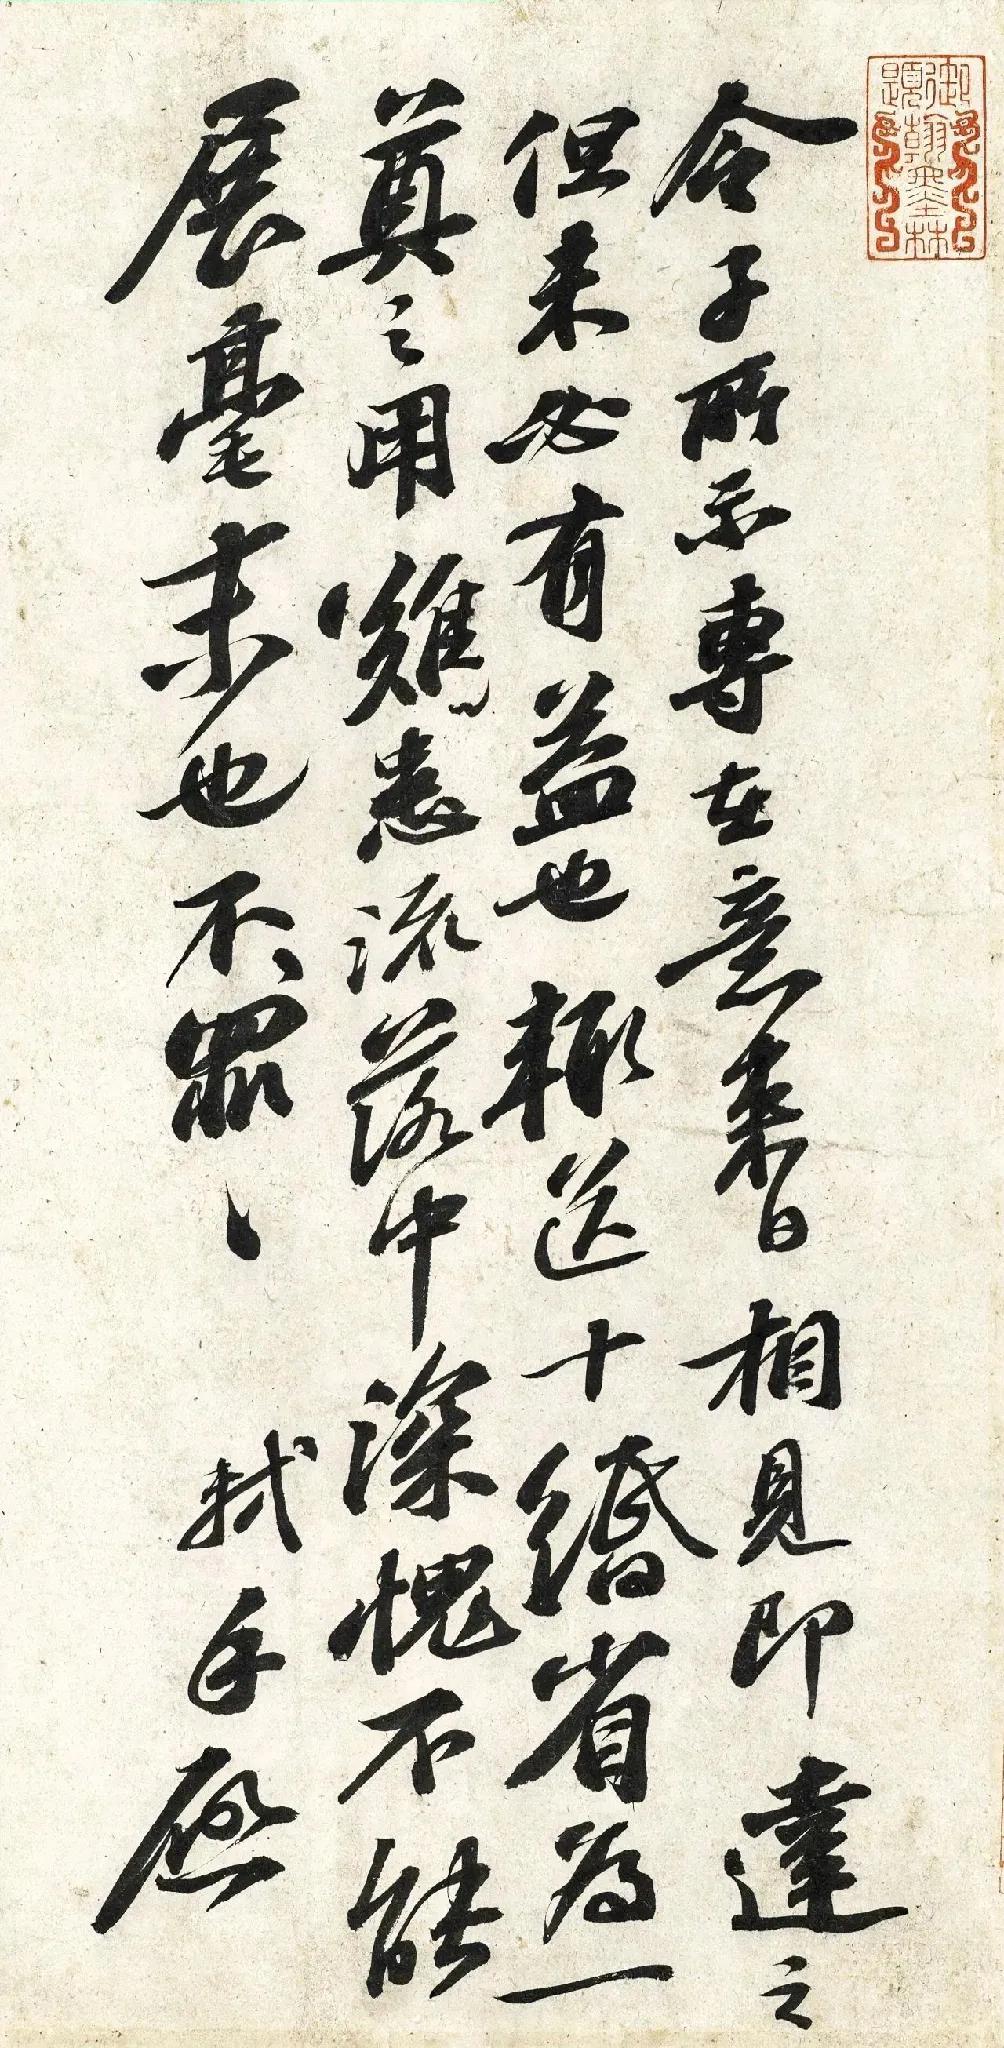 御題翰墨林
令子所示專在意來日相見即達之
但未必有益也輒送十縑省為一
奠之用難悉流落中深愧不能
展毫末也不罪〻
軾手啟